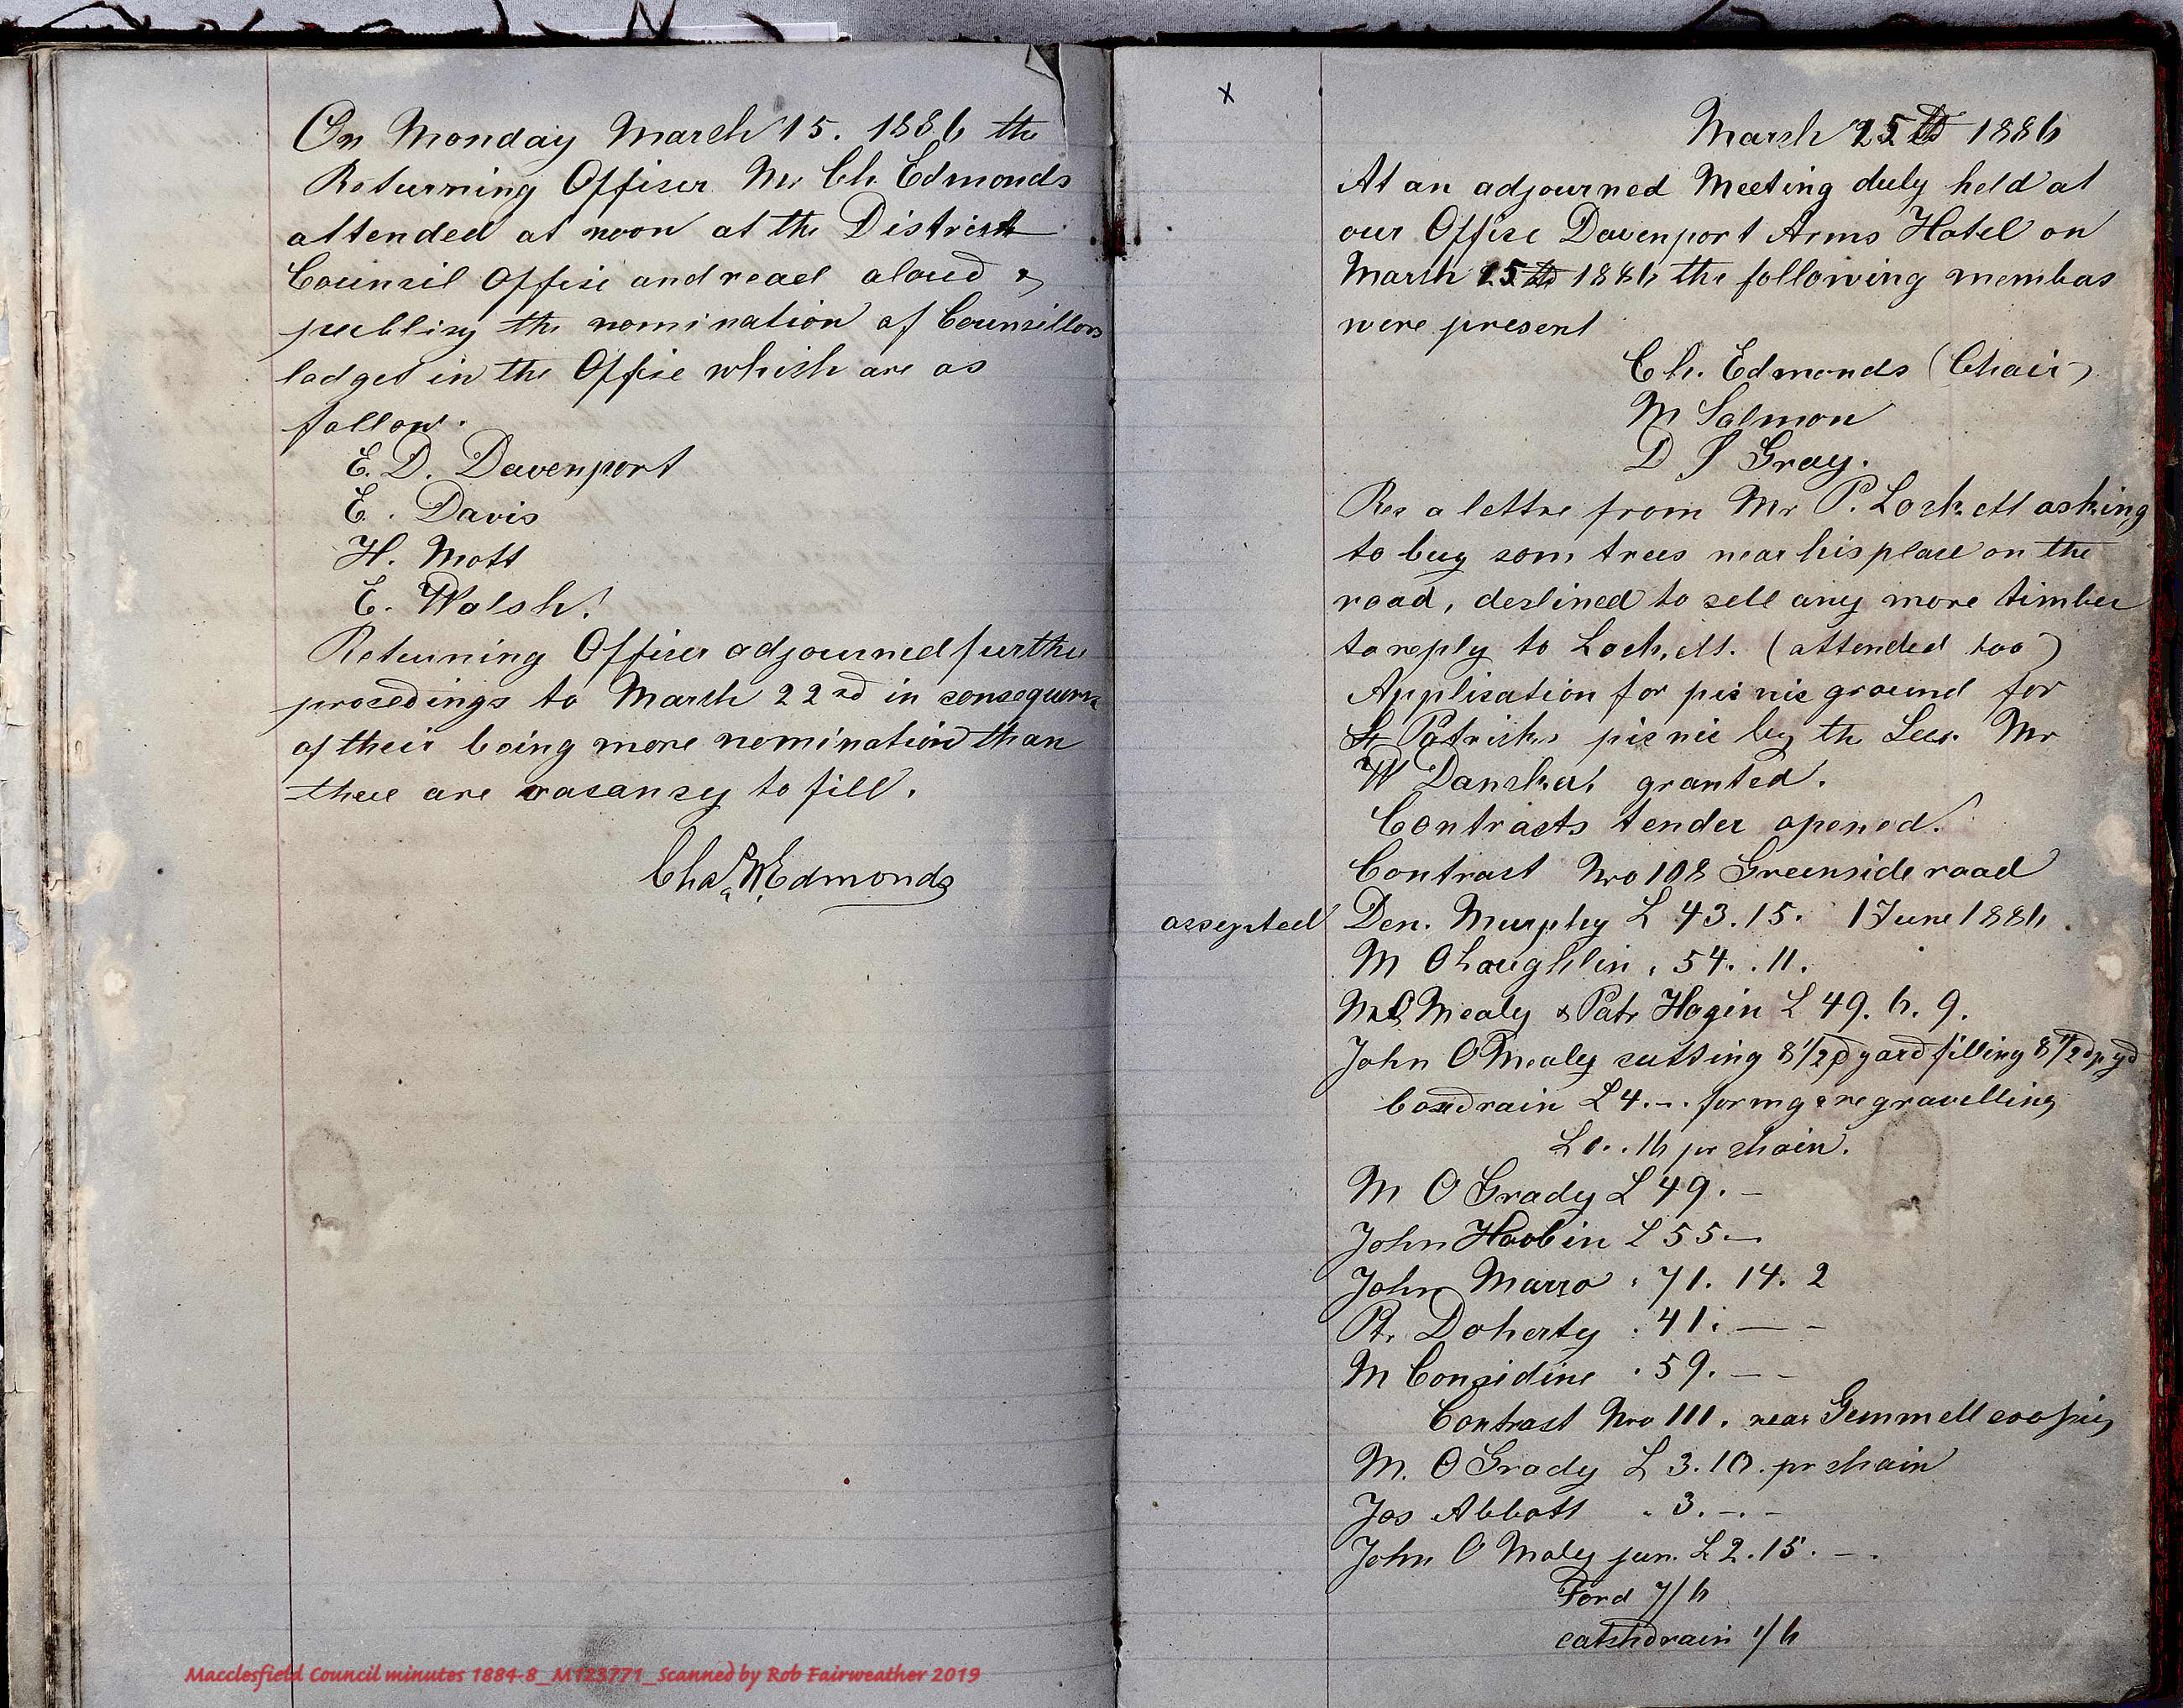 On Monday March 15. 1886 the
Returning Officer Mr Ch Edmonds
attended at noon at the District
Council Office and read aloud &
publicy the nomination of Councillors
lodget in the Office which are as
follow.
E. D. Davenport
E. Davis
H. Mott
E. Walsh.
Returning Officer adjourned further
procedings to March 22nd in consequence
of their being more nomination than
there are vacancy to fill.
Chas R Edmonds
x
March 25th 1886
At an adjourned Meeting duly held at
our Office Davenport Arms Hotel on
March 25th 1886 the following members
were present
Ch. Edmonds (Chair)
M Salmon
D J Gray.
Res a lettre from Mr P. Lockett asking
to buy som trees near his place on the
road, declined to sell any more timber
to reply to Lockett. (attended too)
Application for pic nic ground for
St Patricks pic nic by the Sec. Mr
W Dancker granted.
Contracts tender opened.
Contract Nro 108 Greenside road
accepted Den. Murphy L 43.15. 1 June 1886
M OLoughlin " 54..11.
Mealy & Patr Hagin L 49. 6. 9.
John OMealy cutting 8 1/2 d p yard filling 8 1/2 d p yd
boxdrain L 4.-. formg & regravelling
L 0..16 pr chain.
M O Grady L 49. -
John Hoobin L 55 -
John Marro " 71. 14. 2
Pt. Doherty " 41. - -
M Considine " 59. - -
Contract Nro 111. near Gemmell
M. O Grady L 3.10. pr chain
Jos Abbott " 3. -. -
John O Maley jun. L 2.15. -.
Ford 7/6
catchdrain 1/6
Macclesfield Council minutes 1884-8_M123771_Scanned by Rob Fairweather 2019